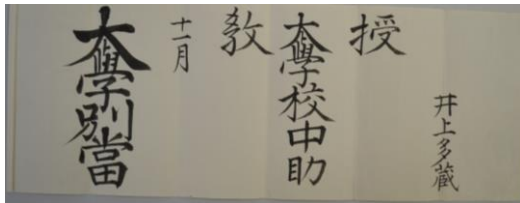 井上多蔵
授
大學校中助
教
十一月
大學別當